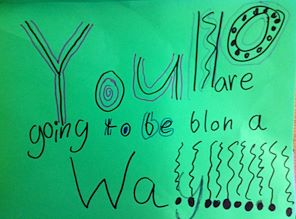 You
are
going to be blon a
Way!!!!!!!!!!